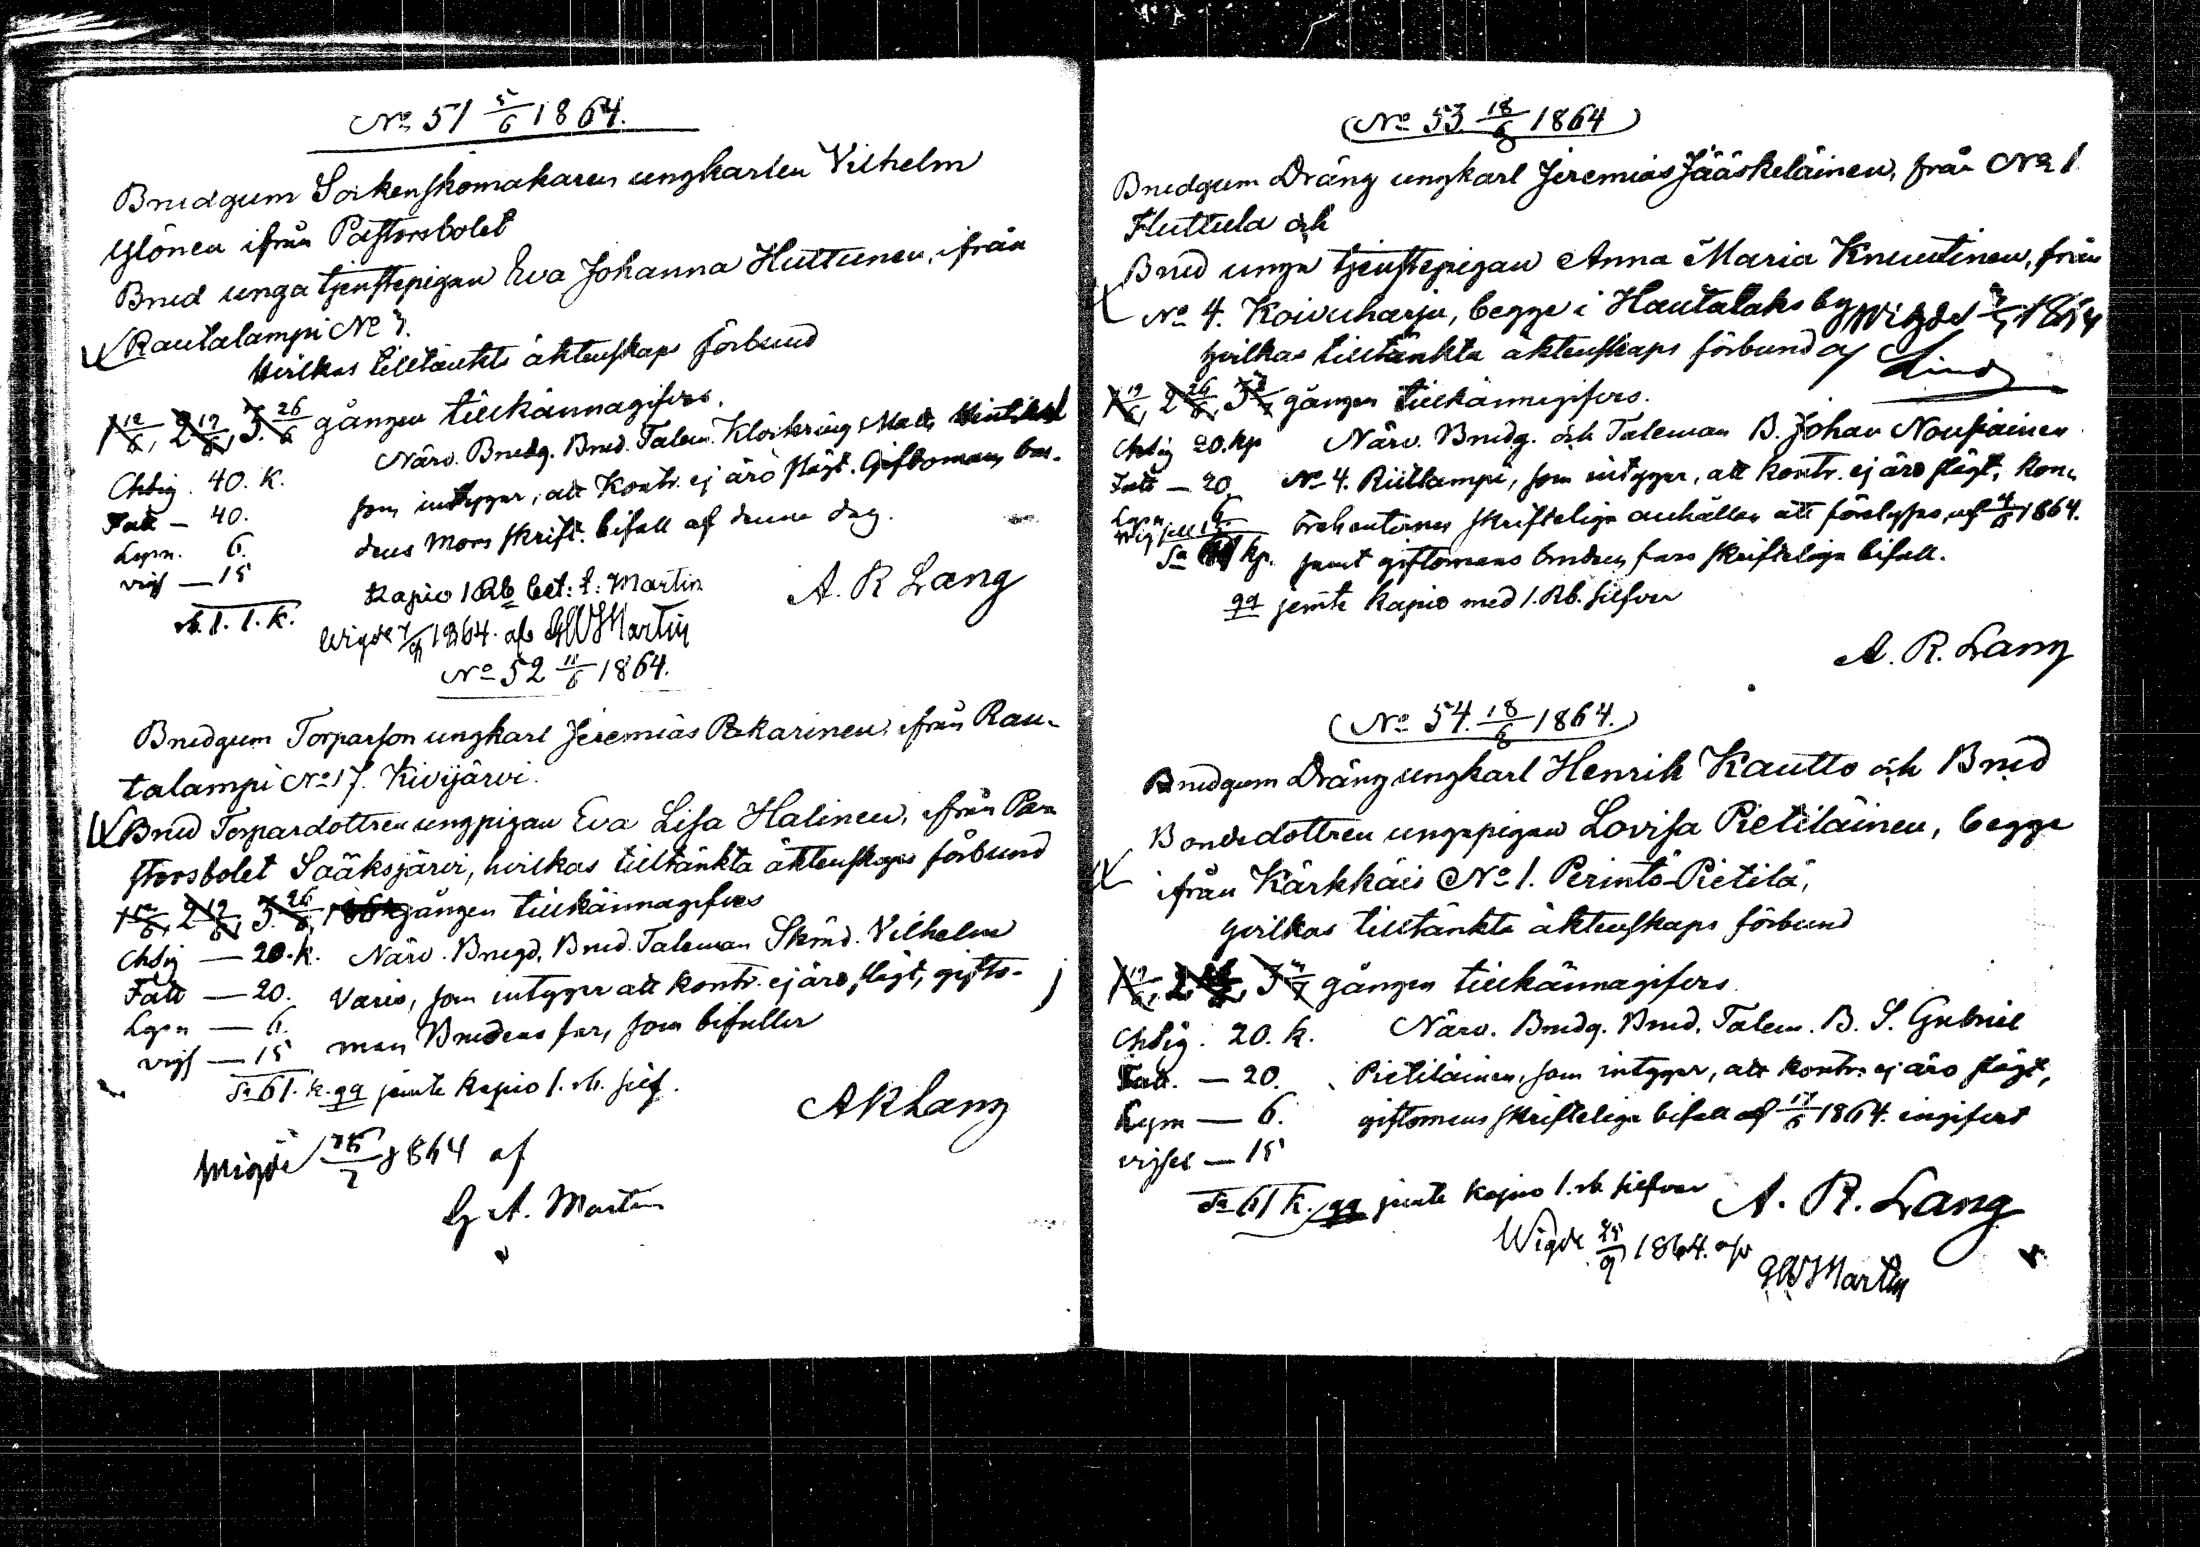 No 51 5/6 1864.
Brudgum Sockenskomakaren ungkarlen Vilhelm
Ylönen ifrån Pastorsbolet
Brud unga tjenstepigan Eva Johanna Huttunen, ifrån
Rautalampi No 7.
Hvilkas tilltänkta äktenskaps förbund
1 12/6, 2 19/6, 3. 26/6 gången tillkännagifves.
Närv. Brudg. Brud. Talem. Klockring. Matts
Chsig. 40. K.
som intygar, att Kontr. ej äro slägt. Giftoman, bru-
Fatt — 40.
dens Mors skrift. bifall af denna dag.
Lysn. 6.
vigs — 15
Kapio 1 Rb bet: t: Martin
A. R Lang
rb. 1. 1. k.
Wigde 1864. af GWMartin
No 52 11/6 1864.
Brudgum Torparson ungkarl Jeremias Pekarinen, ifrån Rau-
talampi No 17. Kivijärvi.
Brud Torpardottren ungpigan Eva Lisa Halinen, ifrån Pa-
storsbolet Sääksjärvi, hvilkas tilltänkta äktenskaps förbund
1 12/6, 2 19/6, 3. 26/6, 1864 gången tillkännagifves
Chsig — 20. k. Närv. Brugd. Brud. Taleman Skräd. Vilhelm
Fatt — 20. Varis, som intygar att kontr. ej äro slägt, gifto-
Lysn — 6.
man Brudens far, som bifaller
vigs — 15
Sa 61. k. qq jemte kapio 1. rb. silf.
ARLang
Wigde 1864 af
G A. Martin
No 53 18/6 1864
Brudgum Dräng ungkarl Jeremias Jääskeläinen, från No 1
Huttula och
Brud unga tjenstepigan Anna Maria Knuutinen, från
No 4. Koivuharju, begge i Hautalaks by
Wigde 1864
hvilkas tilltänkta äktenskaps förbund af Lind
1 19/6, 2 26/6, 3 gången tillkännagifves.
Chsig 20. kp Närv. Brudg. och Taleman B. Johan Noupiainen
Fatt — 20 No 4. Riitlampi, som intygar, att kontr. ej äro slägt, kon-
Lysn 6
trahenternas skrifteliga anhållan att förelysas, af 4/6 1864.
Wigsell 15
Sa 61 kp. samt giftomans brudens fars skrifteliga bifall.
qq jemte kapio med 1. Rb. silfver
A. R. Lang
No 54. 18/6 1864.
Brudgum Dräng ungkarl Henrik Kautto och Brud
Bondedottren ungapigan Lovisa Pietiläinen, begge
ifrån Kärkkäis No 1. Perintö-Pietilä,
hvilkas tilltänkta äktenskaps förbund
1 19/6, 2, 3 gången tillkännagifves.
Chsig. 20. k. Närv. Brudg. Brud. Talem. B. S. Gabriel
Fatt. — 20. Pietiläinen, som intygar, att kontr. ej äro slägt,
Lysn — 6. giftomans skrifteliga bifall af 17/6 1864. ingifvet
vigsel — 15
Sa 61 k. qq jemte kapio 1. rb silfver A. R. Lang
Wigde 25/9 1864. af
GWMartin